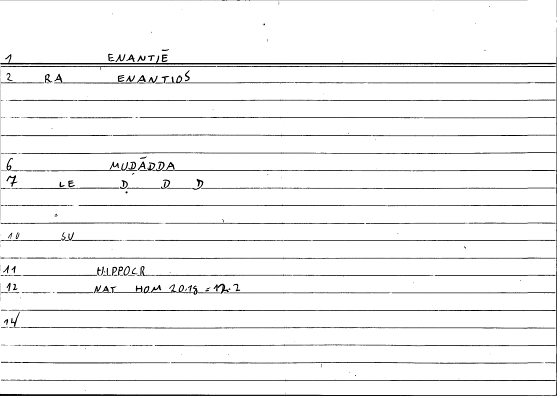 1 ENANTIĒ
2 RA ENANTIOS
6 MUḌĀDDA
7 LE Ḍ D D
10 SU
11 HIPPOCR
12 NAT HOM 20.18 = 12.2
14